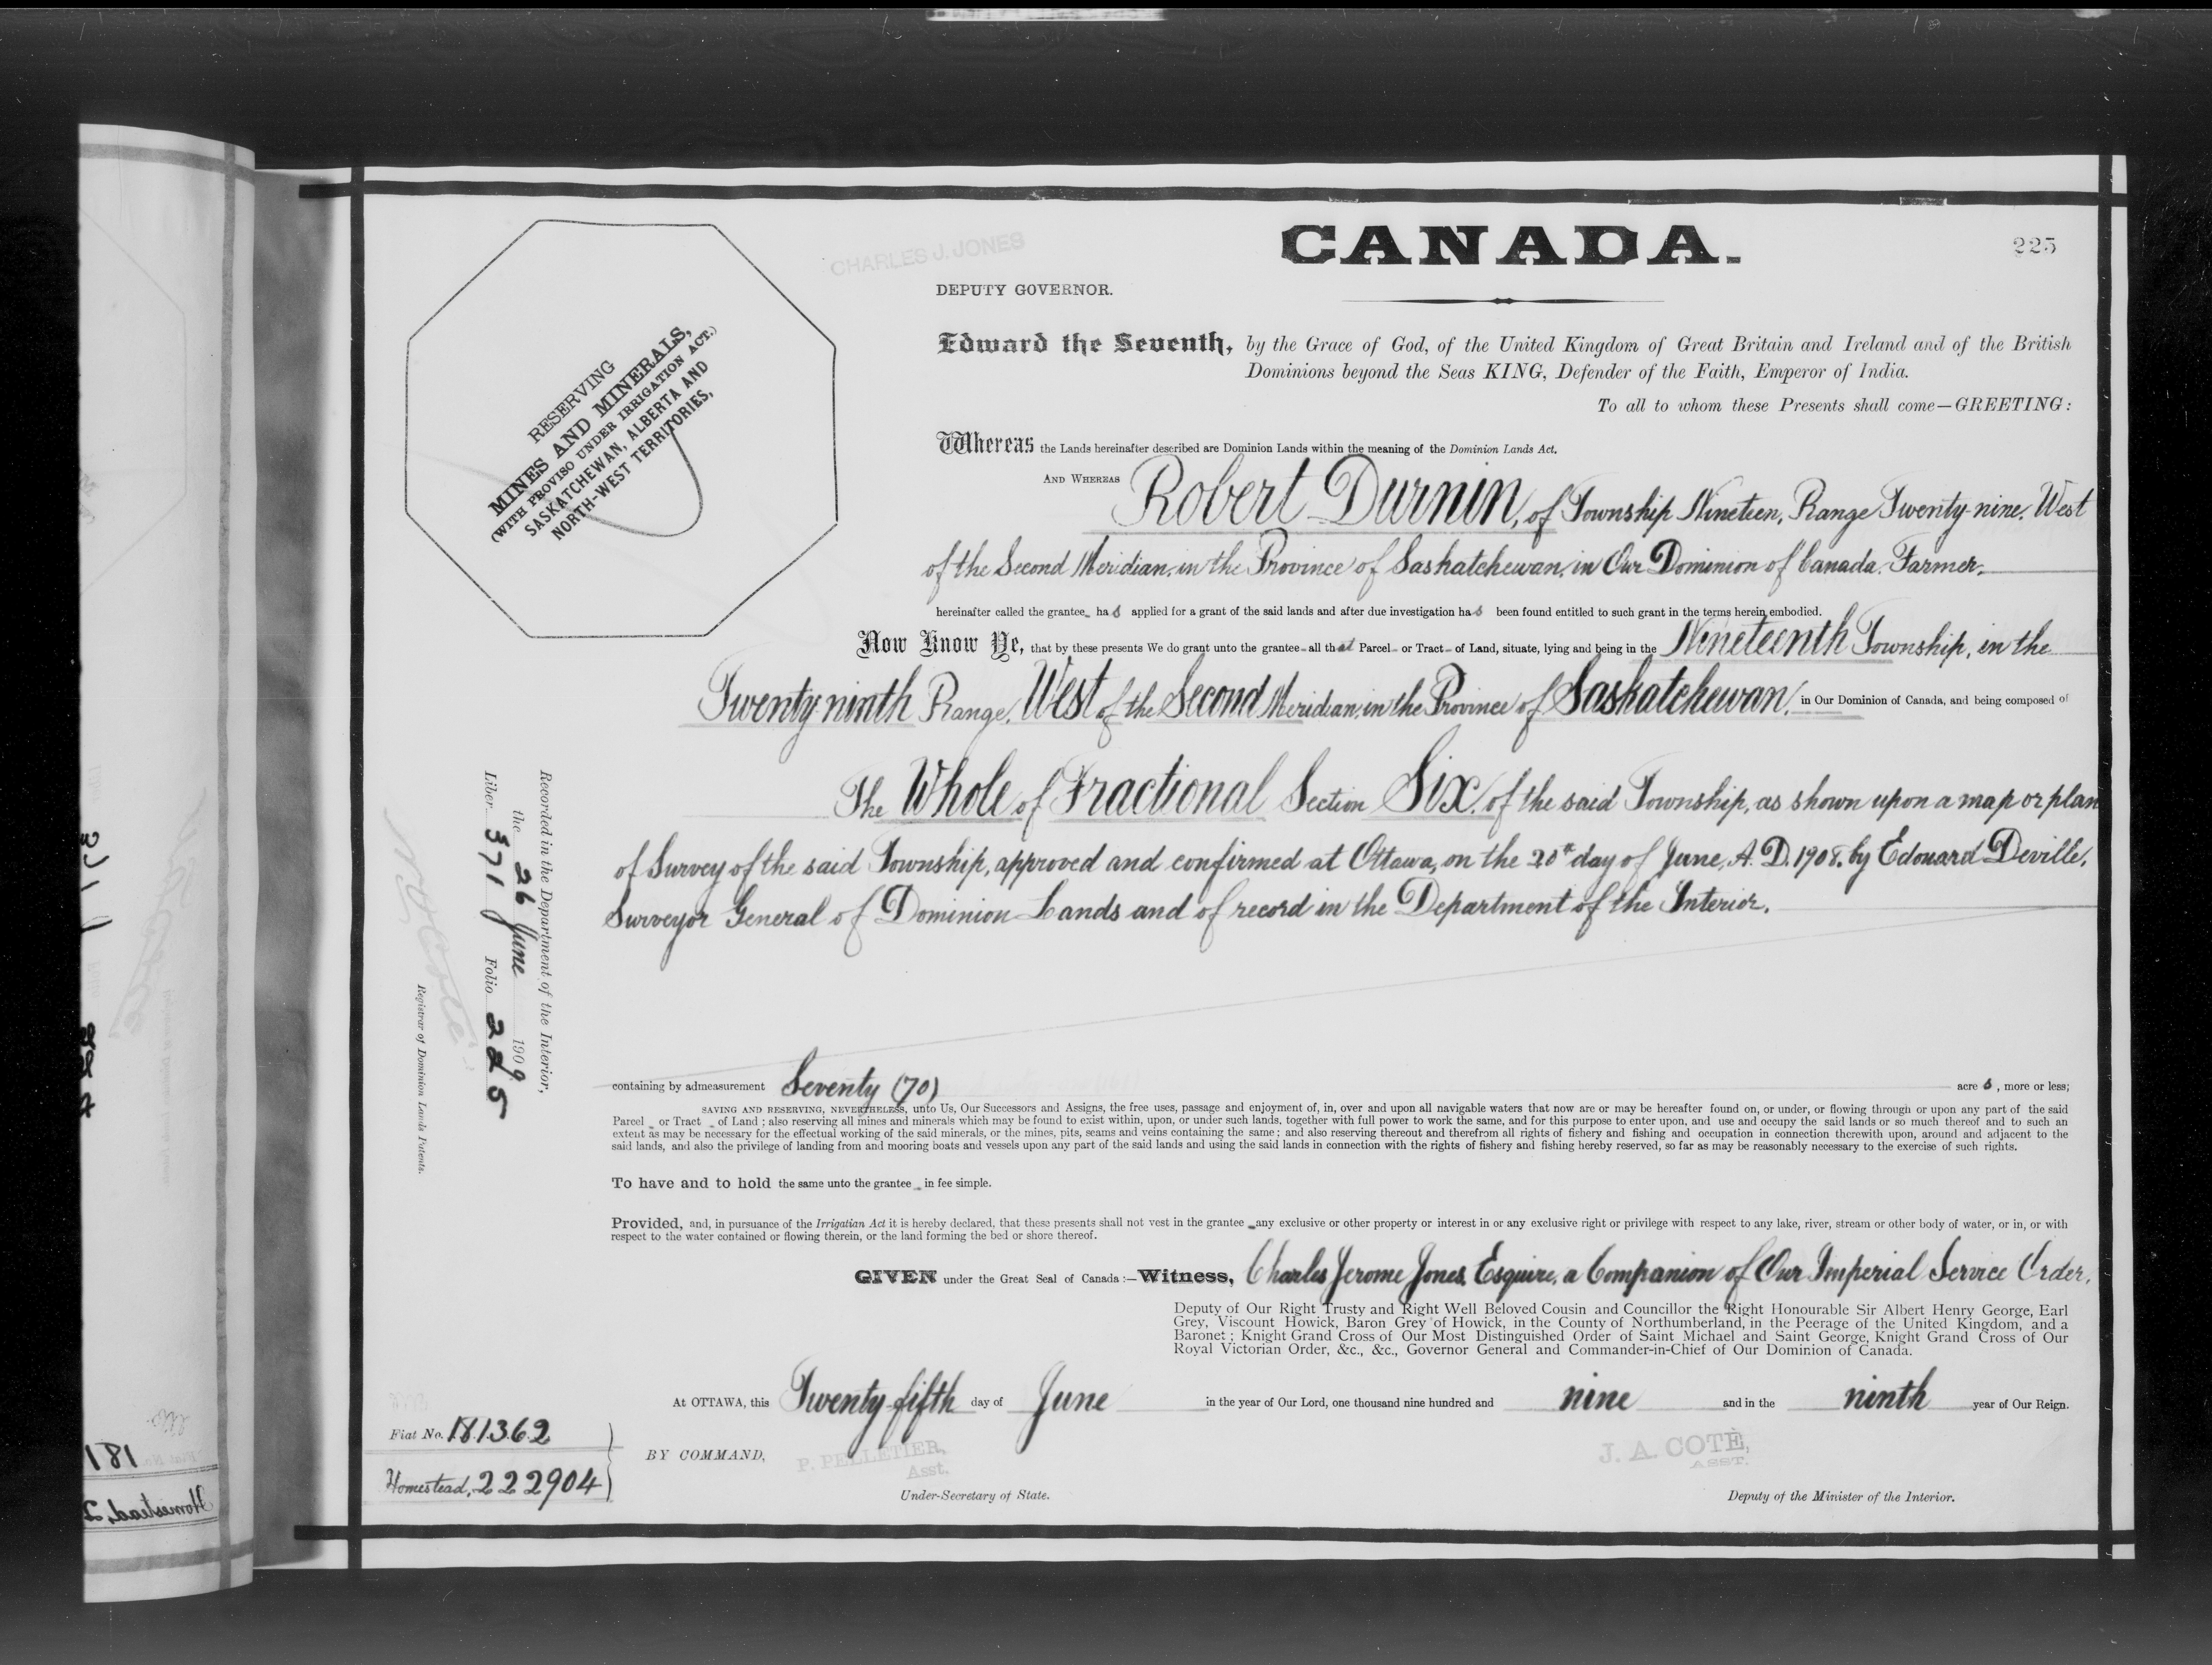 CANADA.
225
CHARLES J. JONES
DEPUTY GOVERNOR.
RESERVING
MINES AND MINERALS,
(WITH PROVISO UNDER IRRIGATION ACT.)
SASKATCHEWAN, ALBERTA AND
NORTH-WEST TERRITORIES,
Edward the Seventh, by the Grace of God, of the United Kingdom of Great Britain and Ireland and of the British
Dominions beyond the Seas KING, Defender of the Faith, Emperor of India.
To all to whom these Presents shall come—GREETING:
Whereas the Lands hereinafter described are Dominion Lands within the meaning of the Dominion Lands Act.
AND WHEREAS Robert Durnin, of Township Nineteen, Range Twenty-nine, West
of the Second Meridian, in the Province of Saskatchewan, in Our Dominion of Canada, Farmer,
hereinafter called the grantee has applied for a grant of the said lands and after due investigation has been found entitled to such grant in the terms herein embodied.
Now Know Ye, that by these presents We do grant unto the grantee all that Parcel or Tract of Land, situate, lying and being in the Nineteenth Township, in the
Twenty-ninth Range, West of the Second Meridian, in the Province of Saskatchewan, in Our Dominion of Canada, and being composed of
The Whole of Fractional Section Six, of the said Township, as shown upon a map or plan
of Survey of the said Township, approved and confirmed at Ottawa, on the 20th day of June, A. D. 1908, by Edouard Deville,
Surveyor General of Dominion Lands and of record in the Department of the Interior.
Recorded in the Department of the Interior,
the 26 June 1909
Liber 371 Folio 225
N. O. Coté
Registrar of Dominion Lands Patents.
containing by admeasurement Seventy (70) acres, more or less;
SAVING AND RESERVING, NEVERTHELESS, unto Us, Our Successors and Assigns, the free uses, passage and enjoyment of, in, over and upon all navigable waters that now are or may be hereafter found on, or under, or flowing through or upon any part of the said
Parcel or Tract of Land; also reserving all mines and minerals which may be found to exist within, upon, or under such lands, together with full power to work the same, and for this purpose to enter upon, and use and occupy the said lands or so much thereof and to such an
extent as may be necessary for the effectual working of the said minerals, or the mines, pits, seams and veins containing the same; and also reserving thereout and therefrom all rights of fishery and fishing and occupation in connection therewith upon, around and adjacent to the
said lands, and also the privilege of landing from and mooring boats and vessels upon any part of the said lands and using the said lands in connection with the rights of fishery and fishing hereby reserved, so far as may be reasonably necessary to the exercise of such rights.
To have and to hold the same unto the grantee in fee simple.
Provided, and, in pursuance of the Irrigation Act it is hereby declared, that these presents shall not vest in the grantee any exclusive or other property or interest in or any exclusive right or privilege with respect to any lake, river, stream or other body of water, or in, or with
respect to the water contained or flowing therein, or the land forming the bed or shore thereof.
GIVEN under the Great Seal of Canada:—Witness, Charles Jerome Jones, Esquire, a Companion of Our Imperial Service Order,
Deputy of Our Right Trusty and Right Well Beloved Cousin and Councillor the Right Honourable Sir Albert Henry George, Earl
Grey, Viscount Howick, Baron Grey of Howick, in the County of Northumberland, in the Peerage of the United Kingdom, and a
Baronet; Knight Grand Cross of Our Most Distinguished Order of Saint Michael and Saint George, Knight Grand Cross of Our
Royal Victorian Order, &c., &c., Governor General and Commander-in-Chief of Our Dominion of Canada.
At OTTAWA, this Twenty-fifth day of June in the year of Our Lord, one thousand nine hundred and nine and in the ninth year of Our Reign.
Fiat No. 181362
Homestead, 222904
BY COMMAND,
P. PELLETIER,
Asst.
Under-Secretary of State.
J. A. COTÉ,
ASST.
Deputy of the Minister of the Interior.